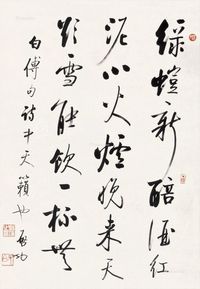 绿螘新醅酒红
泥小火炉晚来天
欲雪能饮一杯无
白傅句诗中天籁也 启功